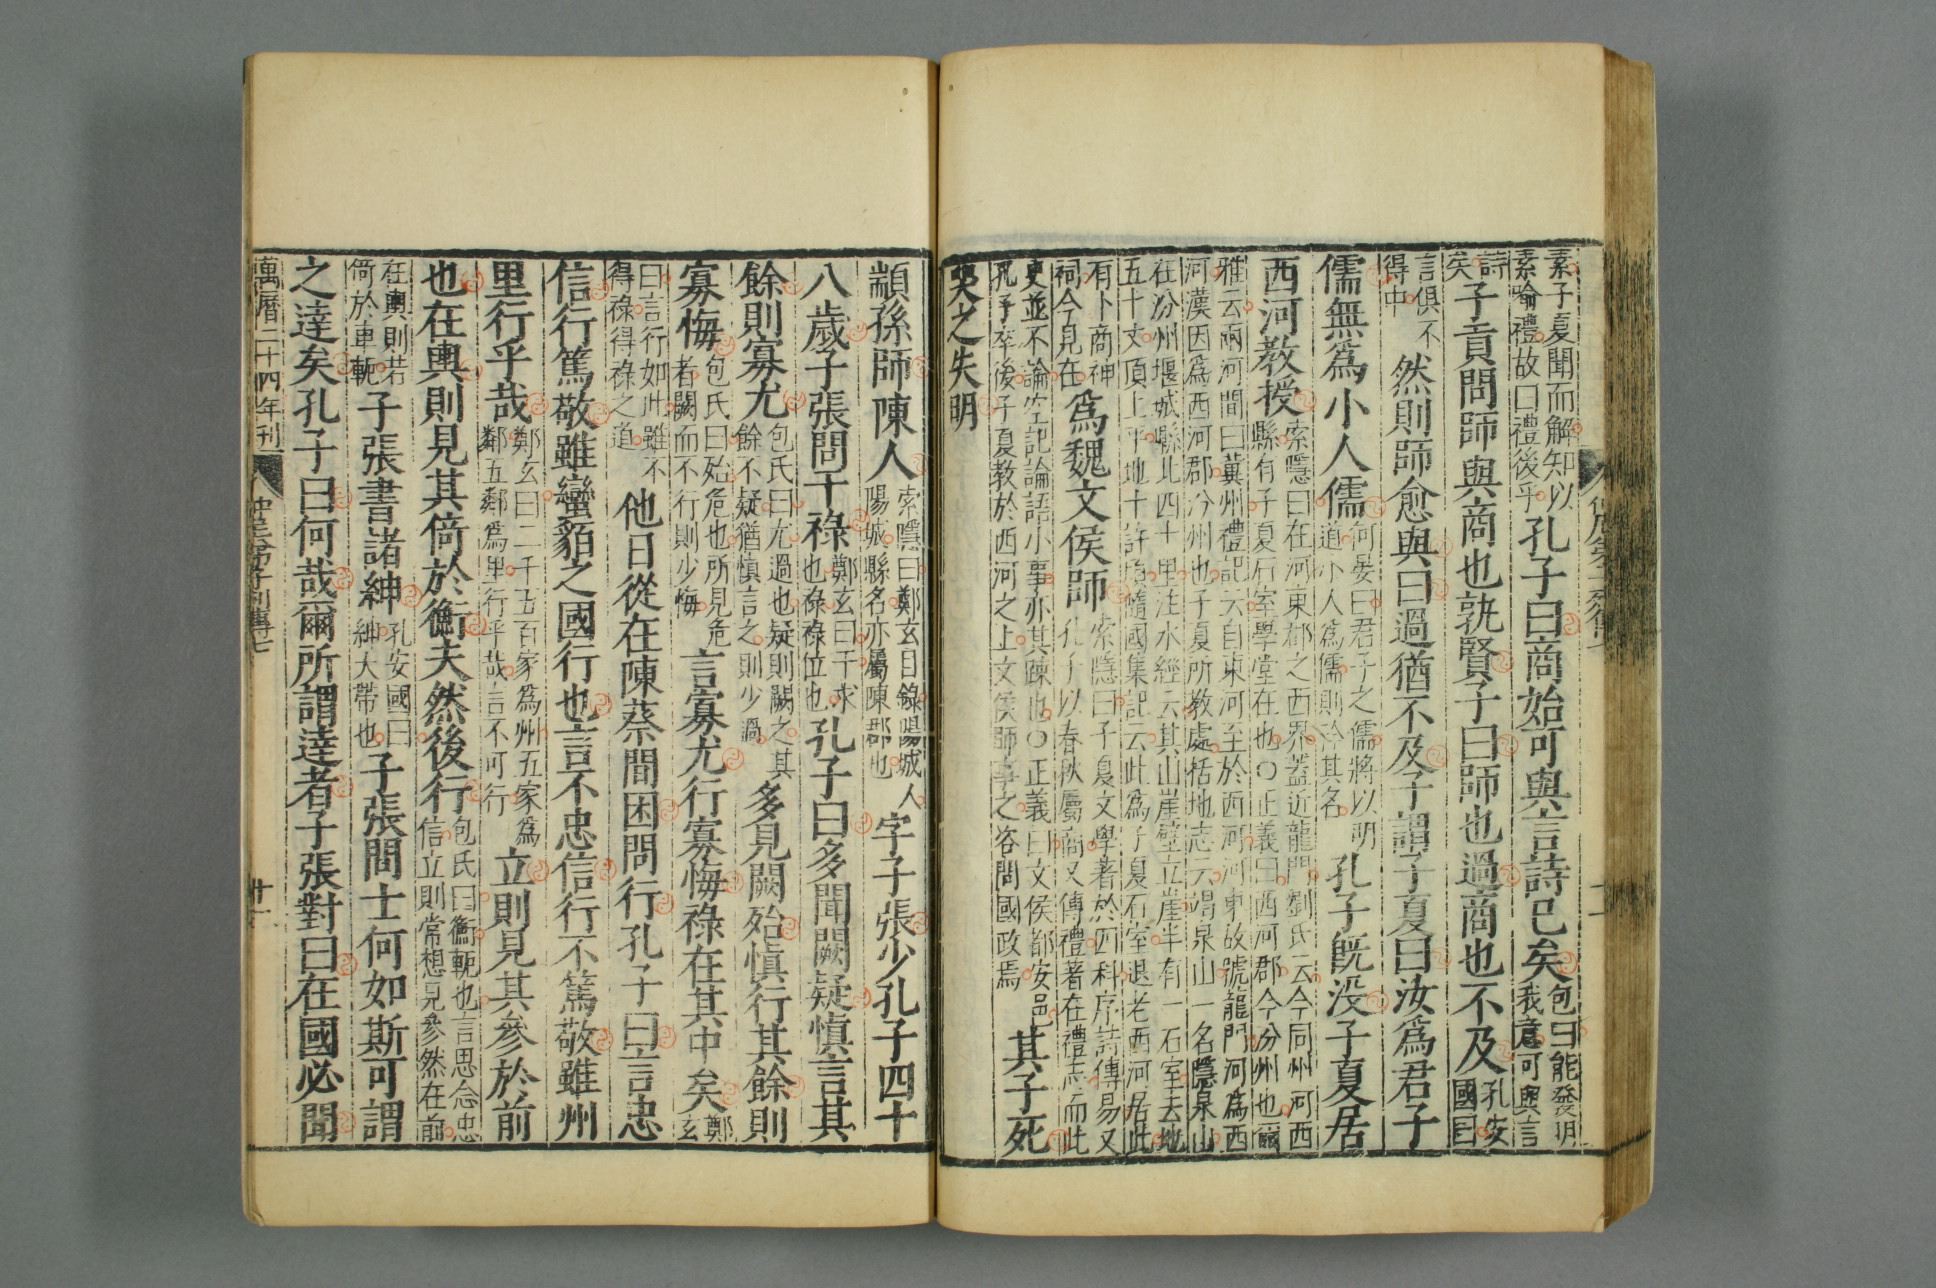 素子夏聞而解知以素喻禮故曰禮後乎孔子曰商始可與言詩已矣包曰能發明我意可與言
詩矣子貢問師與商也孰賢子曰師也過商也不及孔安國曰
言俱不得中然則師愈與曰過猶不及子謂子夏曰汝爲君子
儒無爲小人儒何晏曰君子之儒將以明道小人爲儒則矜其名孔子旣没子夏居
西河教授索隱曰在河東郡之西界蓋近龍門劉氏云今同州河西縣有子夏石室學堂在也○正義曰西河郡今汾州也爾
雅云兩河間曰冀州禮記云自東河至於西河河東故號龍門河爲西河漢因爲西河郡汾州也子夏所教處括地志云謁泉山一名隱泉山
在汾州堰城縣北四十里注水經云其山崖壁立崖半有一石室去地五十丈頂上平地十許頃隨國集記云此爲子夏石室退老西河居此
有卜商神祠今見在爲魏文侯師索隱曰子夏文學著於四科序詩傳易又孔子以春秋屬商又傳禮著在禮志而此
史並不論空記論語小事亦其疎也○正義曰文侯都安邑孔子卒後子夏教於西河之上文侯師事之咨問國政焉其子死
哭之失明
顓孫師陳人索隱曰鄭玄目錄陽城人陽城縣名亦屬陳郡也字子張少孔子四十
八歲子張問干祿鄭玄曰干求也祿祿位也孔子曰多聞闕疑慎言其
餘則寡尤包氏曰尤過也疑則闕之其餘不疑猶慎言之則少過多見闕殆慎行其餘則
寡悔包氏曰殆危也所見危者闕而不行則少悔言寡尤行寡悔祿在其中矣鄭玄
曰言行如此雖不得祿得祿之道他日從在陳蔡間困問行孔子曰言忠
信行篤敬雖蠻貊之國行也言不忠信行不篤敬雖州
里行乎哉鄭玄曰二千五百家爲州五家爲鄰五鄰爲里行乎哉言不可行立則見其參於前
也在輿則見其倚於衡夫然後行包氏曰衡軛也言思念忠信立則常想見參然在前
在輿則若倚於車軛子張書諸紳孔安國曰紳大帶也子張問士何如斯可謂
之達矣孔子曰何哉爾所謂達者子張對曰在國必聞
萬曆二十四年刊 仲尼弟子列傳七 廿一